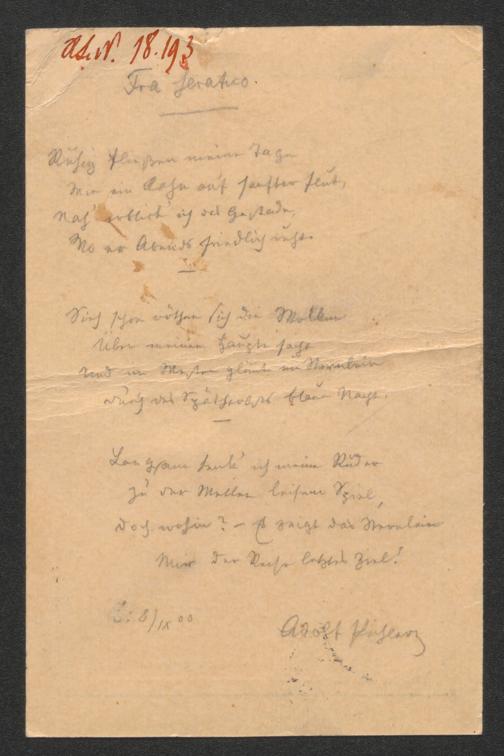 18.193
Fra Serafico.
Ruhig fließen meine Tage
Wie ein Kahn auf sanfter Flut,
Nah' erblick' ich das Gestade,
Wo er Abends friedlich ruht.
Sieh schon röthen sich die Wolken
Über meinem Haupte sacht
Und im Westen glänt ein Sternlein
durch des Spätherbstes blaue Nacht.
Langsam senk' ich meine Ruder
zu der Wellen leisem Spiel,
doch wohin? – Es zeigt das Sternlein
Mir der Reise letztes Ziel!
8/IX 00
Adolf Pichler